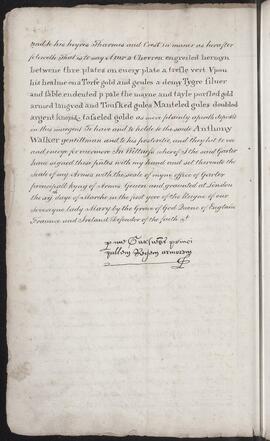 and to his heyres Tharmes and Crest in maner as herafter
followeth That is to say Azure a Cheveron engreiled hermyn
betwene thre plates on every plate a trefle vert Upon
his healme on a Torse gold and geules a demy Tygre silver
and sable endented p pale the mayne and tayle purfled gold
armed langued and Tousked goles Manteled gules doubled
argent tasseled golde as more plainly apereth depicted
in this margent To have and to holde to the saide Anthony
Walker gentillman and to his posteritie, and they hit to use
and enioye for evermore In Witness wherof I the said Garter
have signed these pntes with my hand and set therunto the
seale of my Armes with the seale of myne office of Garter
principall kyng of Armes Geven and graunted at London
the day of Marche in the first yere of the Reigne of our
Sovereigne lady Mary by the Grace of God Quene of England
Fraunce and Ireland Defender of the faith &c
p me Garterr princi
pallem Regem armorum